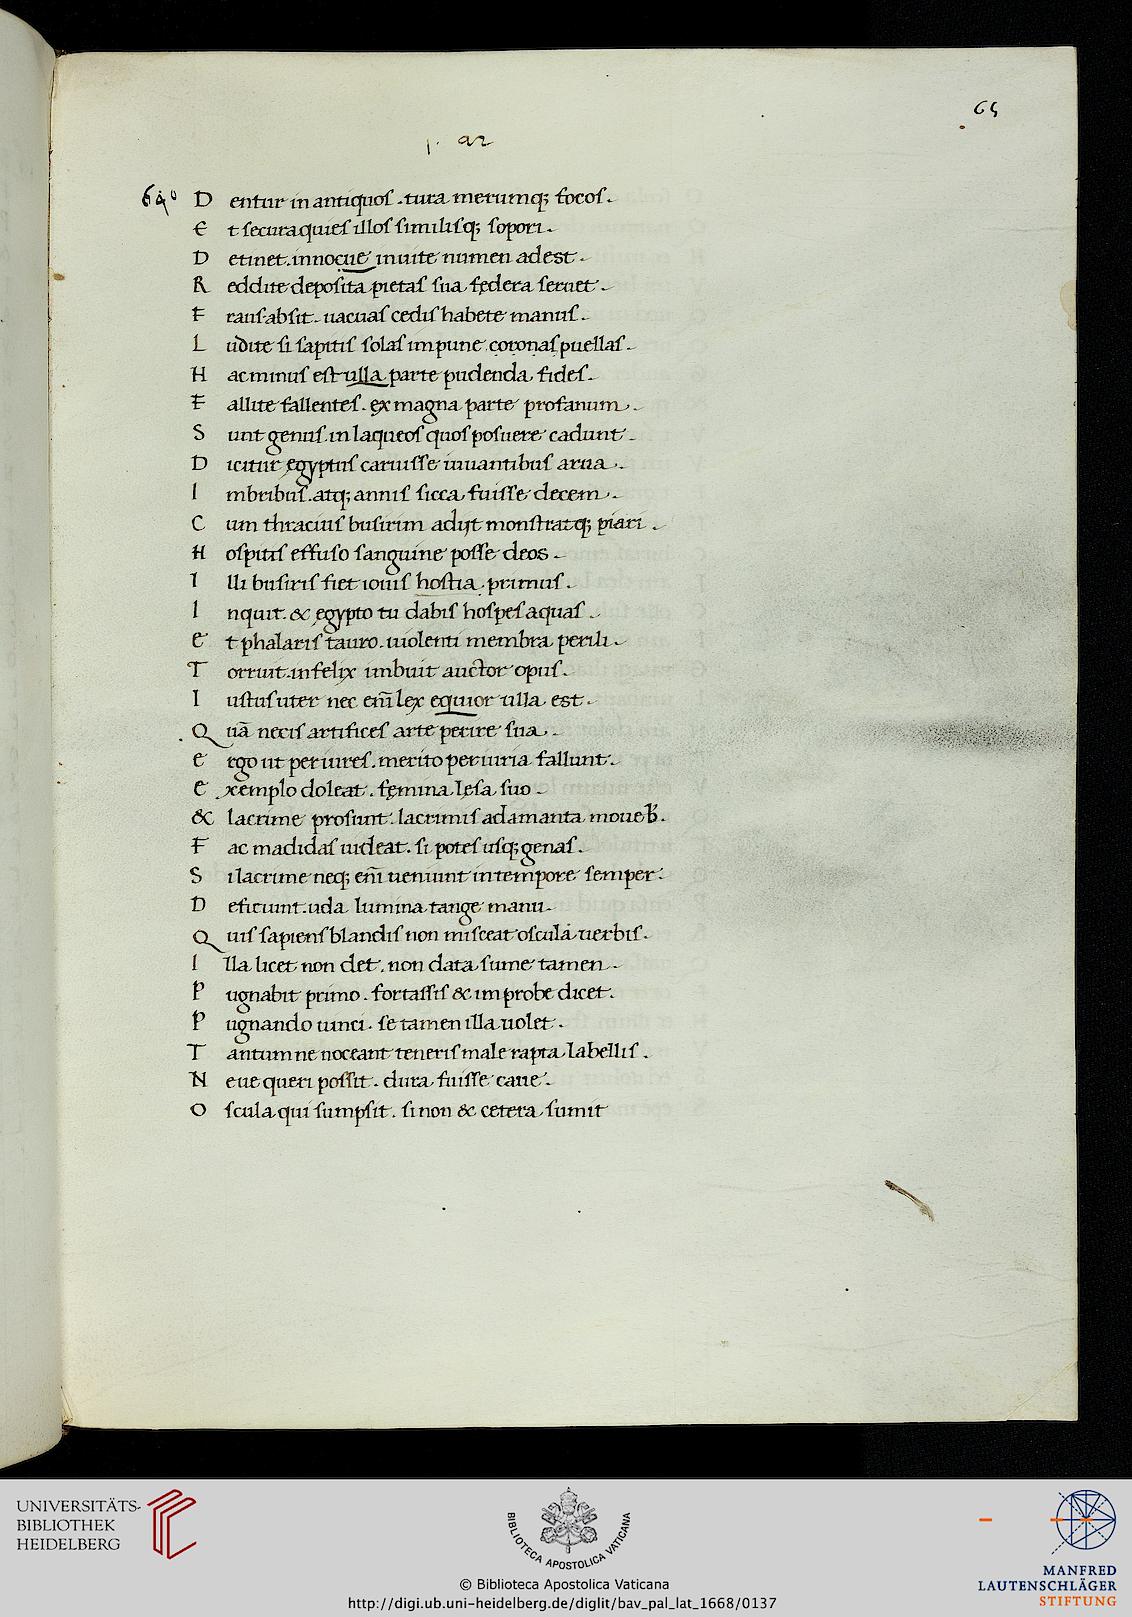 65
1. ar
640 D entur in antiquos . tura merumq; focos .
E t secura quies illos similisq; sopori .
D etinet . innocue inuite numen adest .
R eddite deposita pietas sua fędera seruet .
F raus absit . uacuas cedis habete manus .
L udite si sapitis solas impune coronas puellas .
H ac minus est ulla parte pudenda fides .
F allite fallentes . ex magna parte profanum .
S unt genus . in laqueos quos posuere cadunt .
D icitur ęgyptus caruisse iuuantibus arua .
I mbribus . atq; annis sicca fuisse decem .
C um thracius busirim adijt monstratq; piari .
H ospitis effuso sanguine posse deos .
I lli busiris fiet iouis hostia primus .
I nquit . & ęgypto tu dabis hospes aquas .
E t phalaris tauro . uiolenti membra perili .
T orruit . infelix imbuit auctor opus .
I ustus uter nec em̅ lex equior ulla est .
Q uā necis artifices arte perire sua .
E rgo ut periures . merito periuria fallunt .
E xemplo doleat . fęmina lęsa suo .
& lacrime prosunt . lacrimis adamanta moueb̅ .
F ac madidas uideat . si potes usq; genas .
S i lacrime neq; em̅ ueniunt in tempore semper .
D eficiunt . uda lumina tange manu .
Q uis sapiens blandis non misceat oscula uerbis .
I lla licet non det . non data sume tamen .
P ugnabit primo . fortassis & improbe dicet .
P ugnando uinci . se tamen illa uolet .
T antum ne noceant teneris male rapta labellis .
N eue queri possit . dura fuisse caue .
O scula qui sumpsit . si non & cetera sumit
UNIVERSITÄTS-
BIBLIOTHEK
HEIDELBERG
BIBLIOTECA APOSTOLICA VATICANA
© Biblioteca Apostolica Vaticana
http://digi.ub.uni-heidelberg.de/diglit/bav_pal_lat_1668/0137
MANFRED
LAUTENSCHLÄGER
STIFTUNG